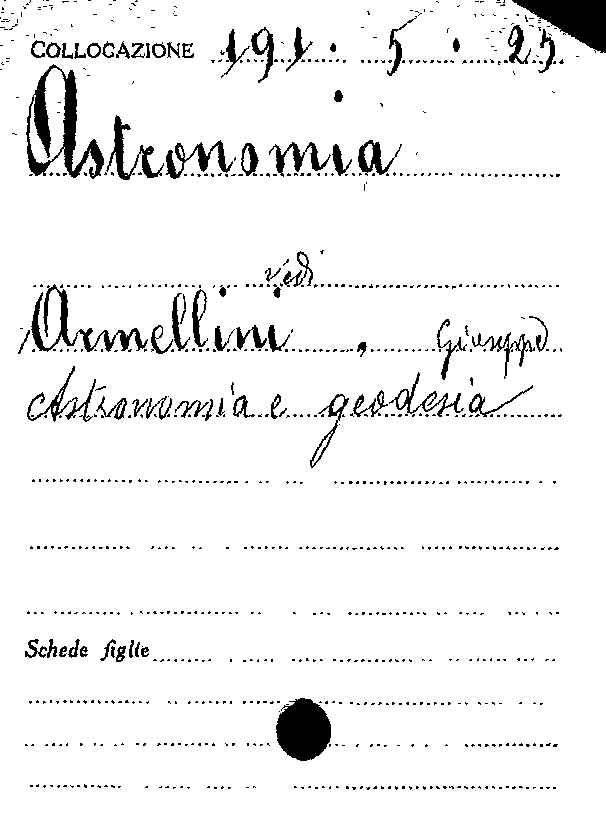 COLLOCAZIONE 191. 5. 25
Astronomia
vedi
Armellini, Giuseppe
Astronomia e geodesia
Schede figlie